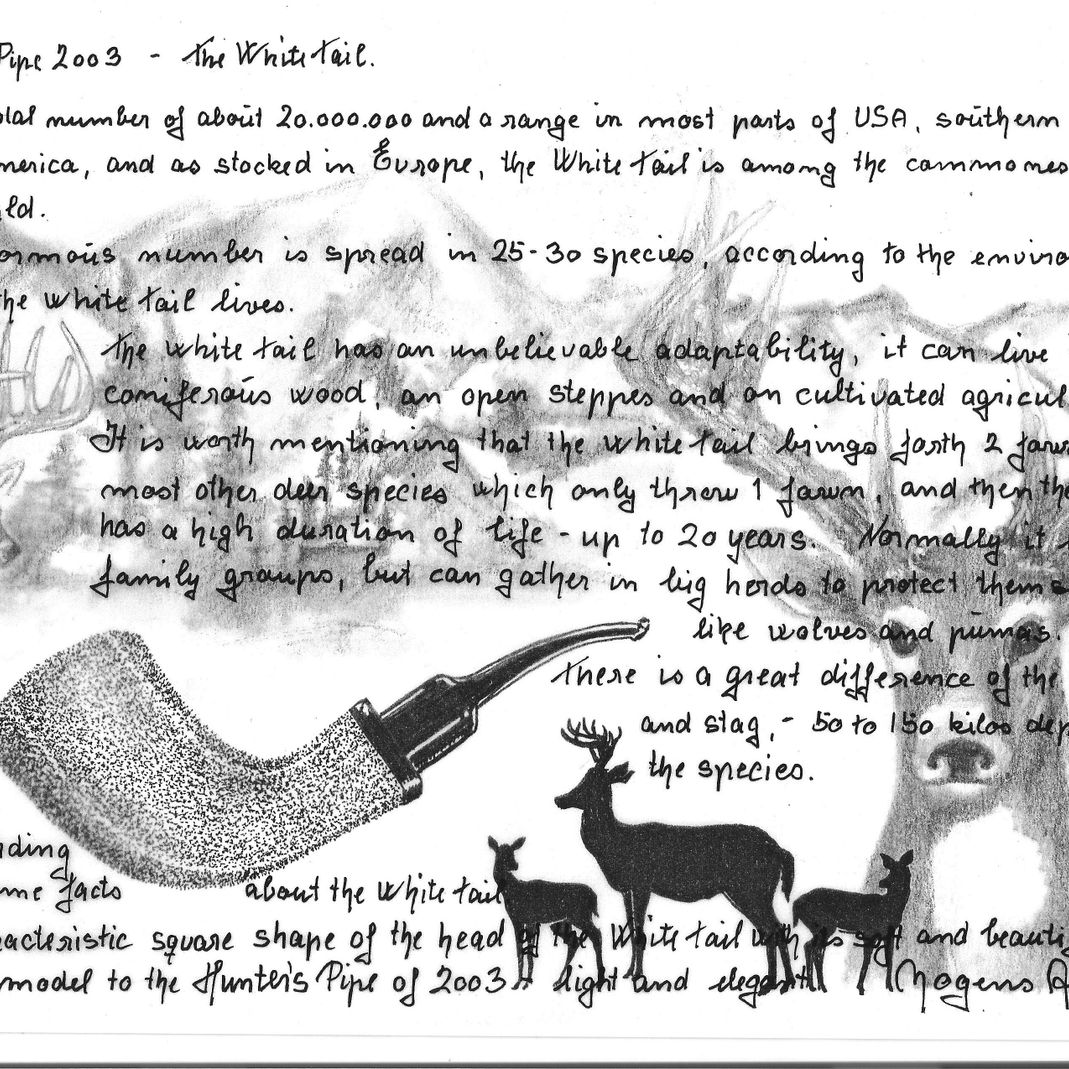 Pipe 2003 - The White tail.
otal number of about 20.000.000 and a range in most parts of USA, southern
merica, and as stocked in Europe, the White tail is among the commones
ld.
ormous number is spread in 25-30 species, according to the enviro
the white tail lives.
The white tail has an unbelievable adaptability, it can live
coniferous wood, an open steppes and on cultivated agricul
It is worth mentioning that the white tail brings forth 2 fawn
most other deer species which only threw 1 fawn, and then the
has a high duration of life - up to 20 years. Normally it
family groups, but can gather in big herds to protect thems
like wolves and pumas.
There is a great difference of the
and stag, - 50 to 150 kilos dep
the species.
ding
me facts about the white tail
racteristic square shape of the head of the White tail with its soft and beauti
model to the Hunter's Pipe of 2003 light and elegant. Mogens